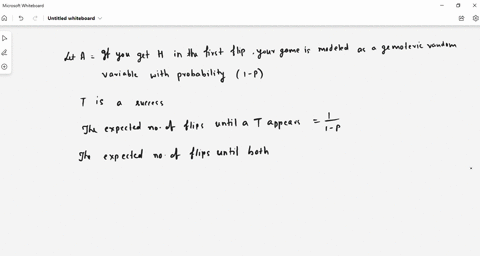 Microsoft Whiteboard
Untitled whiteboard
Let A = If you get H in the first flip, your game is modeled as a gemoleric random
variable with probability (1-P)
T is a success
The expected no. of flips until a T appears = 1/(1-P)
The expected no. of flips until both